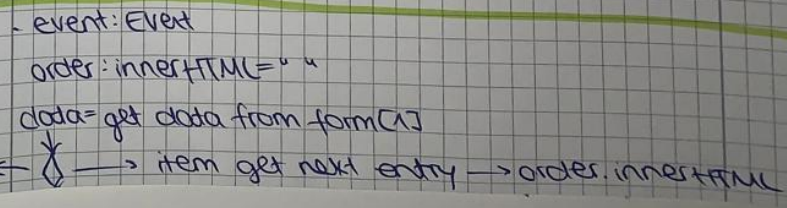 - event: Event
order: innerHTML=" "
data= get data from form[1]
← → item get next entry → order.innerHTML